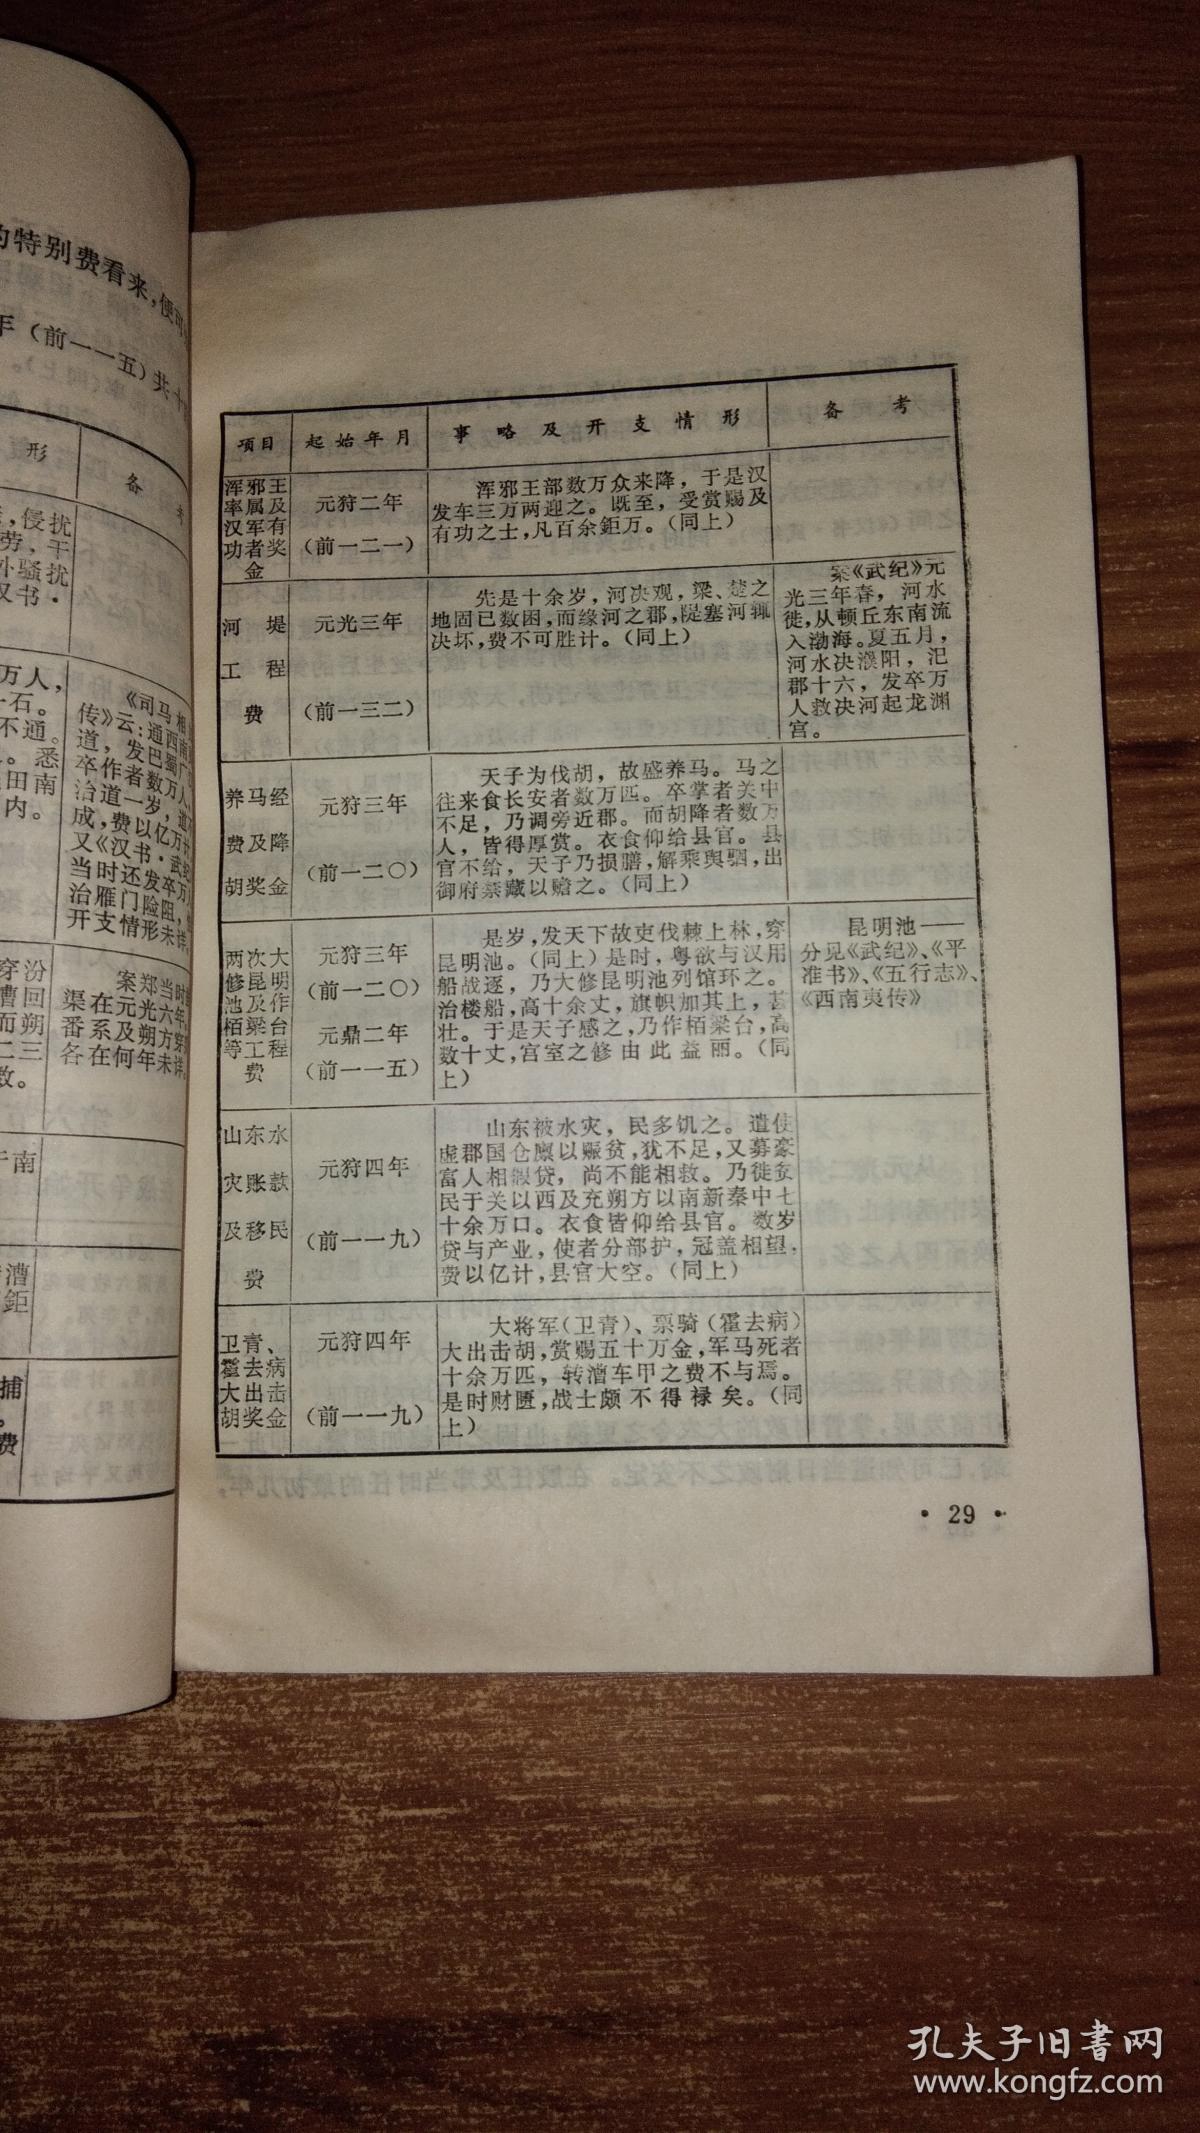 的特别费看来，便可
年（前一一五）共十
形 备
，侵扰
劳，干
外骚扰
汉书·
万人，
一石。
不通。
。悉
田南
内。
《司马相
传》云：通西南
道，发巴蜀广
卒，作者数万人
治道一岁，道不
成，费以亿万计
又《汉书·武纪
当时还发卒万
治雁门险阻，
开支情形未详。
穿汾
漕回
而朔
二三
数。
案郑当时
渠在元光六年，
番系及朔方
各在何年未详。
于南
漕
钜
捕
。
费
项目 起始年月 事略及开支情形 备考
浑邪王
率属及
汉军有
功者奖
金
元狩二年
（前一二一）
浑邪王部数万众来降，于是汉
发车三万两迎之。既至，受赏赐及
有功之士，凡百余鉅万。（同上）
河堤
工程
费
元光三年
（前一三二）
先是十余岁，河决观，梁、楚之
地固已数困，而缘河之郡，隄塞河辄
决坏，费不可胜计。（同上）
案《武纪》元
光三年春，河水
徙，从顿丘东南流
入渤海。夏五月，
河水决濮阳，汜
郡十六，发卒万
人救决河起龙渊
宫。
养马经
费及降
胡奖金
元狩三年
（前一二〇）
天子为伐胡，故盛养马。马之
往来食长安者数万匹。卒掌者关中
不足，乃调旁近郡。而胡降者数万
人，皆得厚赏。衣食仰给县官。县
官不给，天子乃损膳，解乘舆驷，出
御府禁藏以赡之。（同上）
两次大
修昆明
池及作
栢梁台
等工程
费
元狩三年
（前一二〇）
元鼎二年
（前一一五）
是岁，发天下故吏伐棘上林，穿
昆明池。（同上）是时，粤欲与汉用
船战逐，乃大修昆明池列馆环之。
治楼船，高十余丈，旗帜加其上，甚
壮。于是天子感之，乃作栢梁台，高
数十丈，宫室之修由此益丽。（同
上）
昆明池——
分见《武纪》、《平
准书》、《五行志》、
《西南夷传》
山东水
灾账款
及移民
费
元狩四年
（前一一九）
山东被水灾，民多饥之。遣使
虚郡国仓廪以赈贫，犹不足，又募豪
富人相假贷，尚不能相救。乃徙贫
民于关以西及充朔方以南新秦中七
十余万口。衣食皆仰给县官。数岁
贷与产业，使者分部护，冠盖相望，
费以亿计，县官大空。（同上）
卫青、
霍去病
大出击
胡奖金
元狩四年
（前一一九）
大将军（卫青）、票骑（霍去病）
大出击胡，赏赐五十万金，军马死者
十余万匹，转漕车甲之费不与焉。
是时财匮，战士颇不得禄矣。（同
上）
· 29 ·
孔夫子旧书网
www.kongfz.com